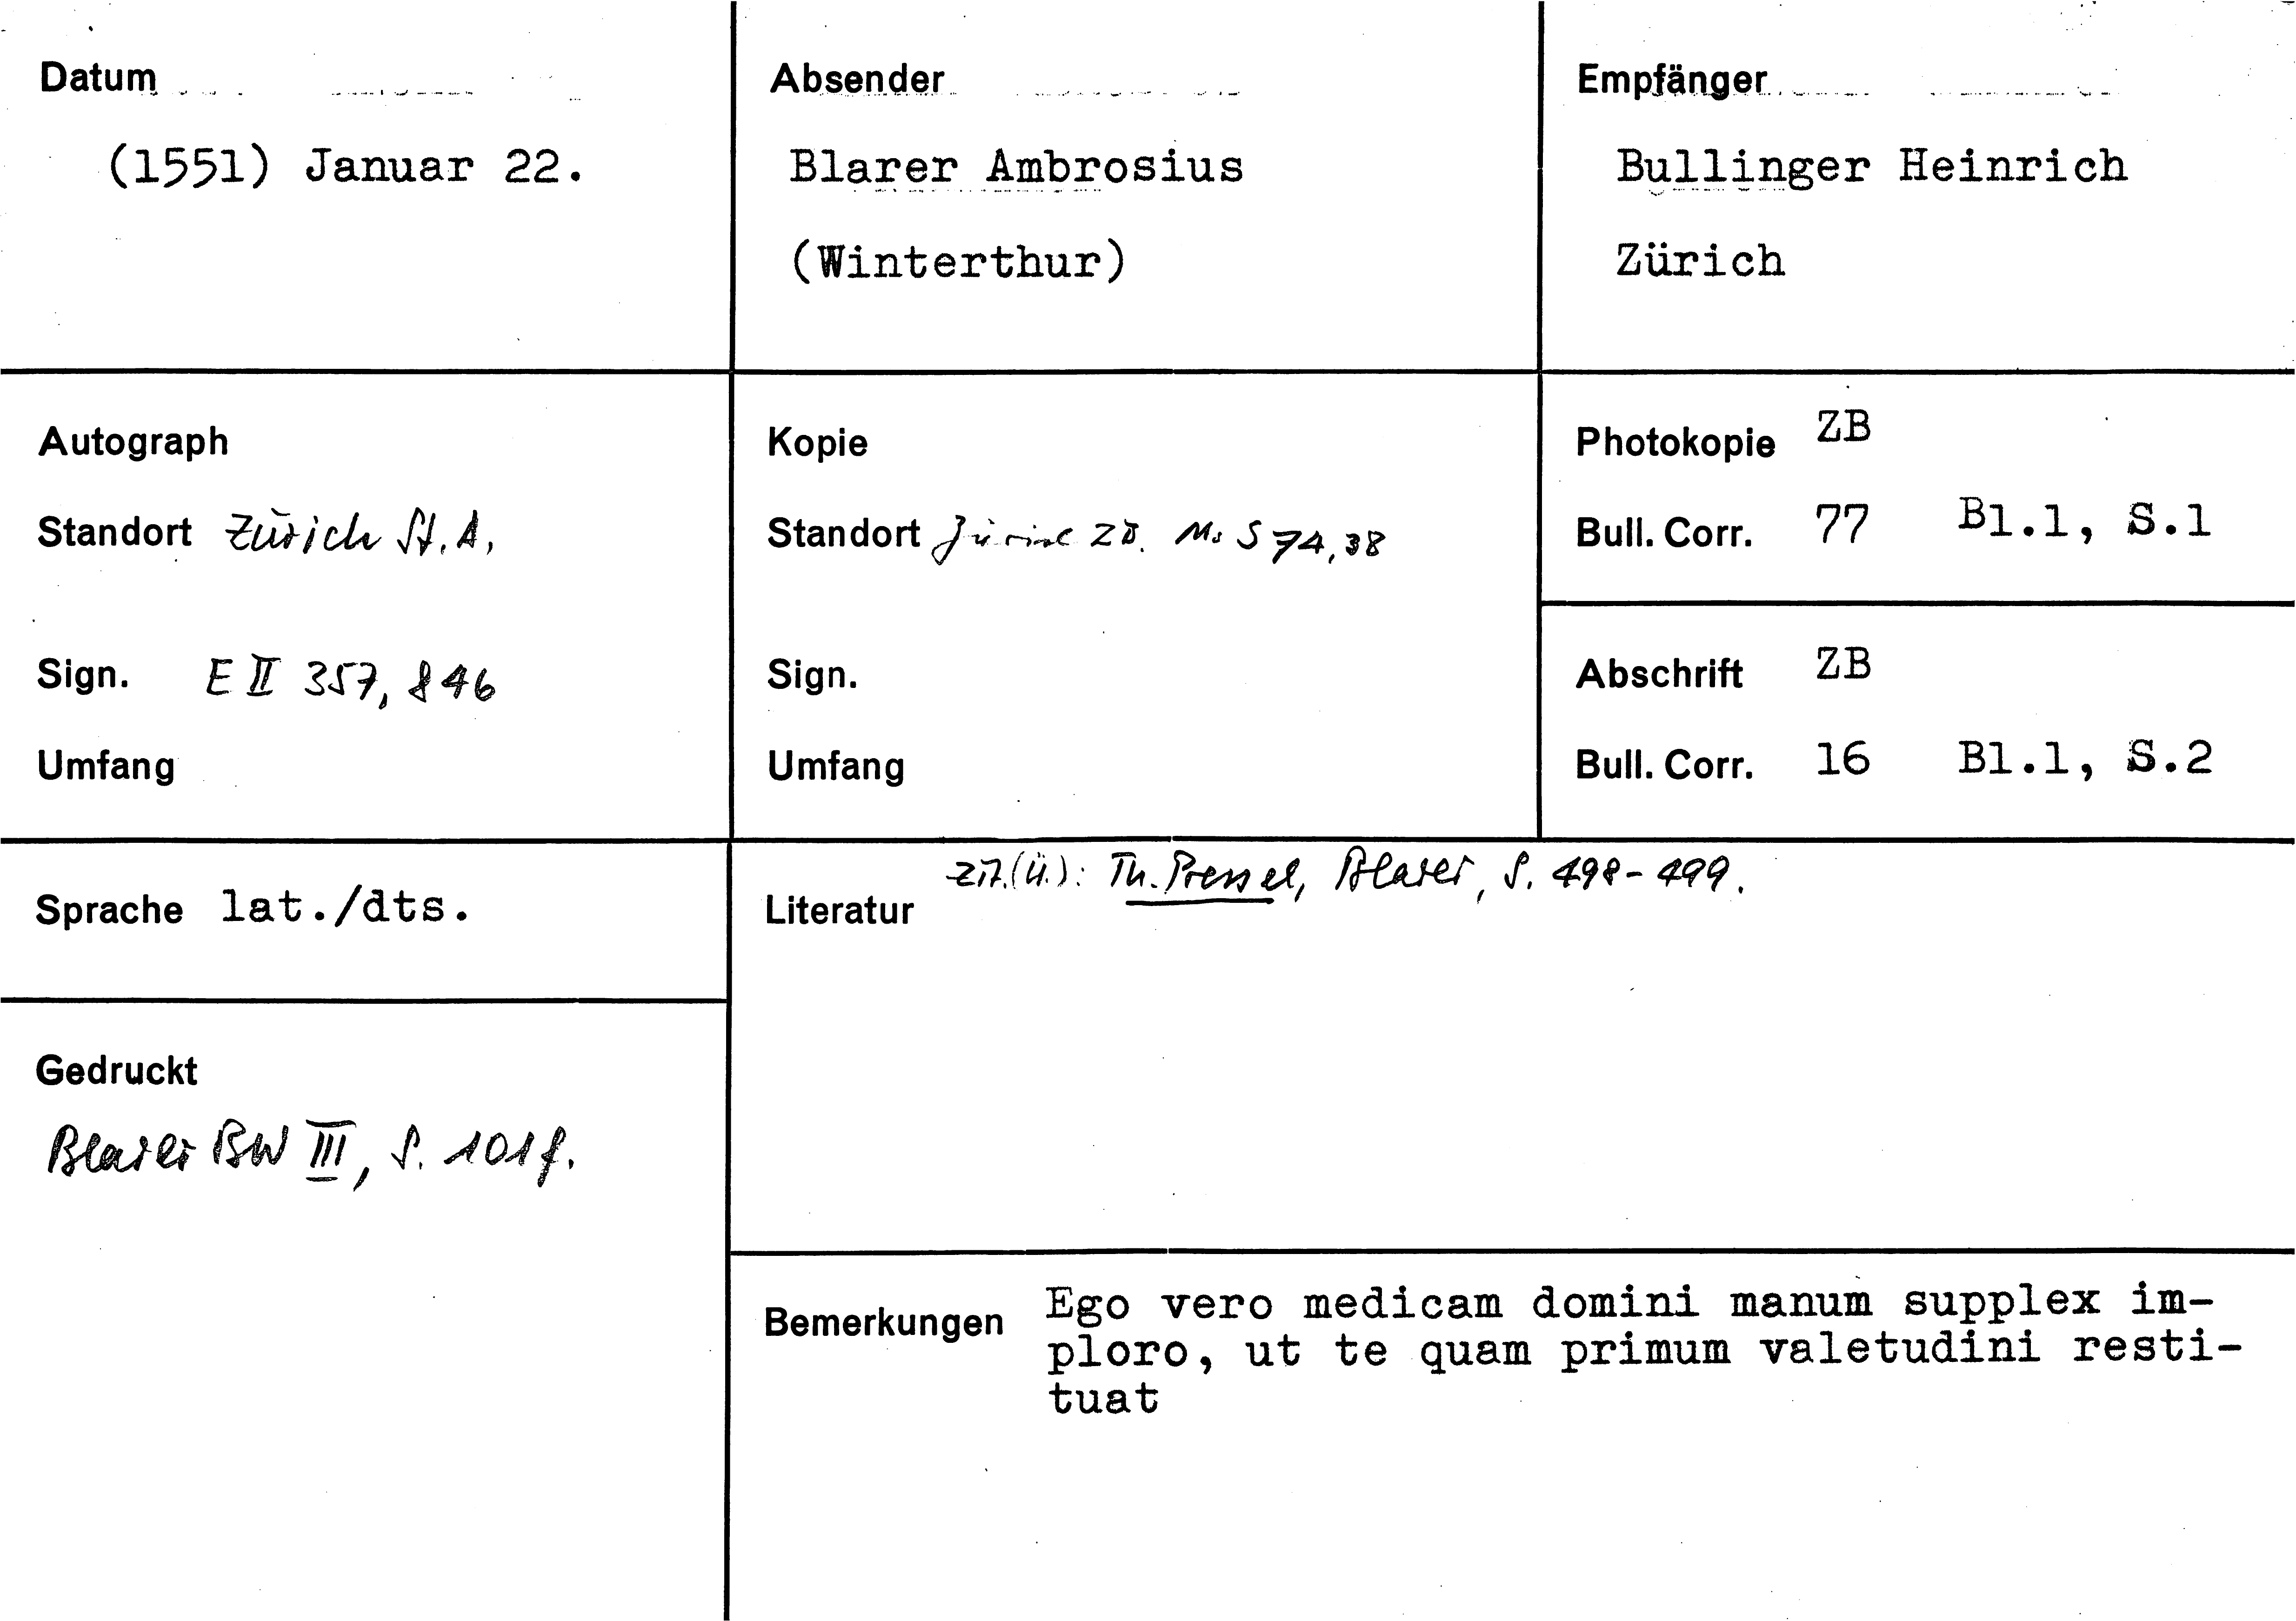 Datum
(1551) Januar 22.
Absender
Blarer Ambrosius
(Winterthur)
Empfänger
Bullinger Heinrich
Zürich
Autograph
Standort Zürich St. A.
Sign. E II 357, 846
Umfang
Kopie
Standort Zürich ZB. Ms S 74, 38
Sign.
Umfang
Photokopie ZB
Bull. Corr. 77 Bl.1, S.1
Abschrift ZB
Bull. Corr. 16 Bl.1, S.2
Sprache lat./dts.
Gedruckt
Blarer BW III, S. 101f.
zit. (Ü.): Th. Pressel, Blarer, S. 498-499.
Literatur
Bemerkungen Ego vero medicam domini manum supplex im-
ploro, ut te quam primum valetudini resti-
tuat